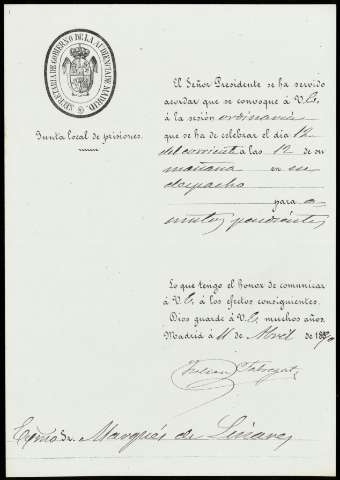 SECRETARIA DE GOBIERNO DE LA AUDIENCIA DE MADRID
Junta local de prisiones.
El Señor Presidente se ha servido
acordar que se convoque á V.E.
á la sesión ordinaria
que se ha de celebrar el dia 12
del corriente á las 12 de su
mañana en su
despacho
para a-
suntos pendientes
Lo que tengo el honor de comunicar
á V.E. á los efectos consiguientes.
Dios guarde á V.E. muchos años.
Madrid á 11 de Abril de 1890
Exmo Sr. Marqués de Linares